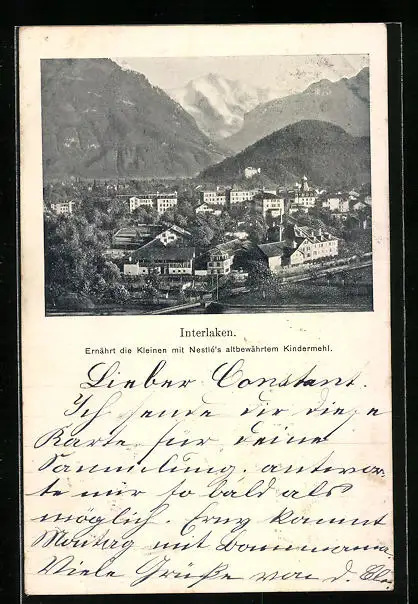 Interlaken.
Ernährt die Kleinen mit Nestlé's altbewährtem Kindermehl.
Lieber Constant.
Ich sende dir diese
Karte für deine
Sammlung, antwor-
te mir so bald als
möglich. Erny kommt
Montag mit
Viele Grüße von d.